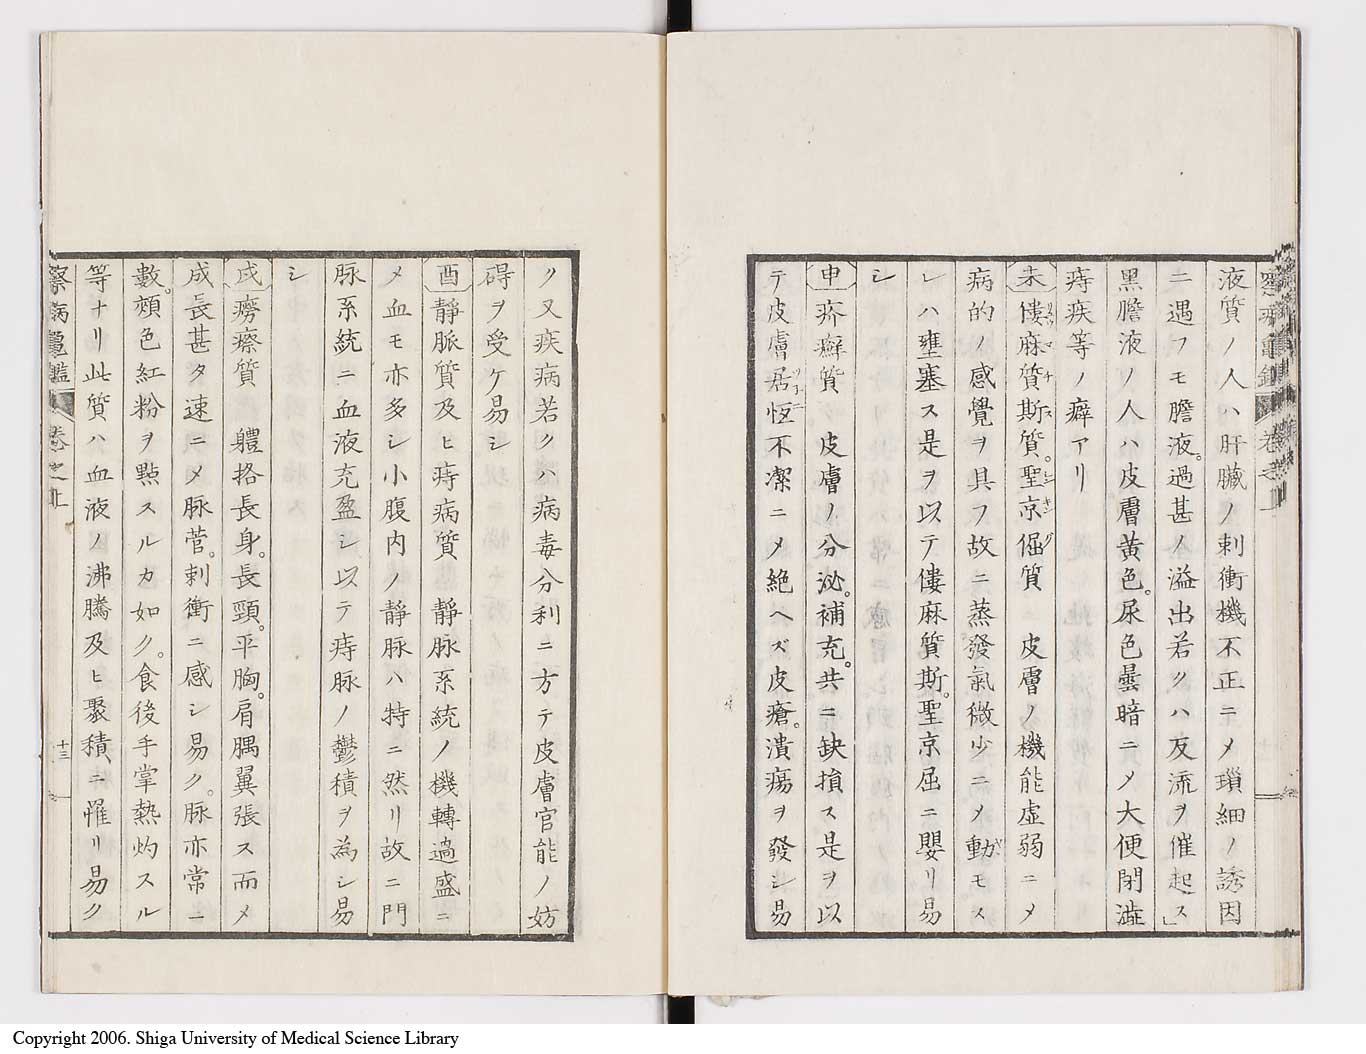 液質ノ人ハ肝臓ノ刺衝機不正ニメ瑣細ノ誘因
ニ遇フモ膽液。過甚ノ溢出若クハ反流ヲ催起ス」
黒膽液ノ人ハ皮膚黄色。尿色曇暗ニメ大便閉澁
痔疾等ノ癖アリ
未 僂麻質斯質。聖京倔質 皮膚ノ機能虚弱ニメ
病的ノ感覺ヲ具フ故ニ蒸發氣微少ニメ動モス
レハ壅塞ス是ヲ以テ僂麻質斯。聖京屈ニ嬰リ易
シ
申 疥癬質 皮膚ノ分泌。補充。共ニ缺損ス是ヲ以
テ皮膚居恆不潔ニメ絶ヘズ皮瘡。潰瘍ヲ發シ易
ク又疾病若クハ病毒分利ニ方テ皮膚官能ノ妨
碍ヲ受ケ易シ
酉 靜脈質及ヒ痔病質 靜脉系統ノ機轉過盛ニ
メ血モ亦多シ小腹内ノ靜脉ハ特ニ然リ故ニ門
脉系統ニ血液充盈シ以テ痔脉ノ鬱積ヲ為シ易
シ
戌 癆瘵質 軆格長身。長頸。平胸。肩髃翼張ス而メ
成長甚タ速ニメ脉菅。刺衝ニ感シ易ク。脉亦常ニ
數。頰色紅粉ヲ點スルカ如ク。食後手掌熱灼スル
等ナリ此質ハ血液ノ沸騰及ヒ聚積ニ罹リ易ク
察病龜鑑 卷之上 十三
Copyright 2006. Shiga University of Medical Science Library